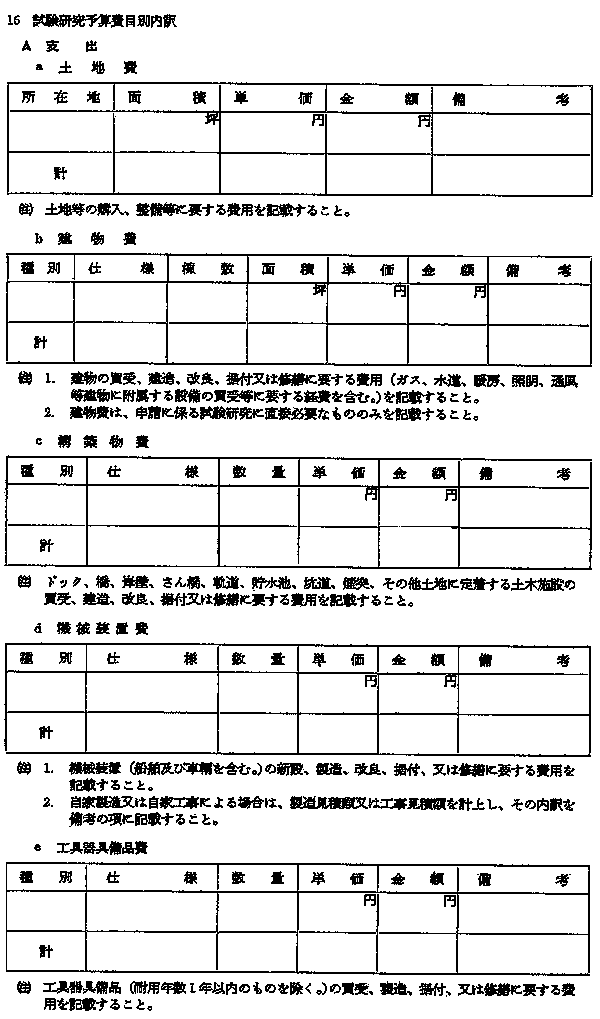 16 試験研究予算費目別内訳
A 支 出
a 土 地 費
所 在 地 面 積 単 価 金 額 備 考
坪 円 円
計
(注) 土地等の購入、整備等に要する費用を記載すること。
b 建 物 費
種 別 仕 様 棟 数 面 積 単 価 金 額 備 考
坪 円 円
計
(注) 1. 建物の買受、建造、改良、据付又は修繕に要する費用(ガス、水道、暖房、照明、通風
等建物に附属する設備の買受等に要する経費を含む。)を記載すること。
2. 建物費は、申請に係る試験研究に直接必要なもののみを記載すること。
c 構 築 物 費
種 別 仕 様 数 量 単 価 金 額 備 考
円 円
計
(注) ドック、橋、岸壁、さん橋、軌道、貯水池、坑道、煙突、その他土地に定着する土木施設の
買受、建造、改良、据付又は修繕に要する費用を記載すること。
d 機 械 装 置 費
種 別 仕 様 数 量 単 価 金 額 備 考
円 円
計
(注) 1. 機械装置(船舶及び車輛を含む。)の新設、製造、改良、据付、又は修繕に要する費用を
記載すること。
2. 自家製造又は自家工事による場合は、製造見積額又は工事見積額を計上し、その内訳を
備考の項に記載すること。
e 工具器具備品費
種 別 仕 様 数 量 単 価 金 額 備 考
円 円
計
(注) 工具器具備品(耐用年数1年以内のものを除く。)の買受、製造、据付、又は修繕に要する費
用を記載すること。